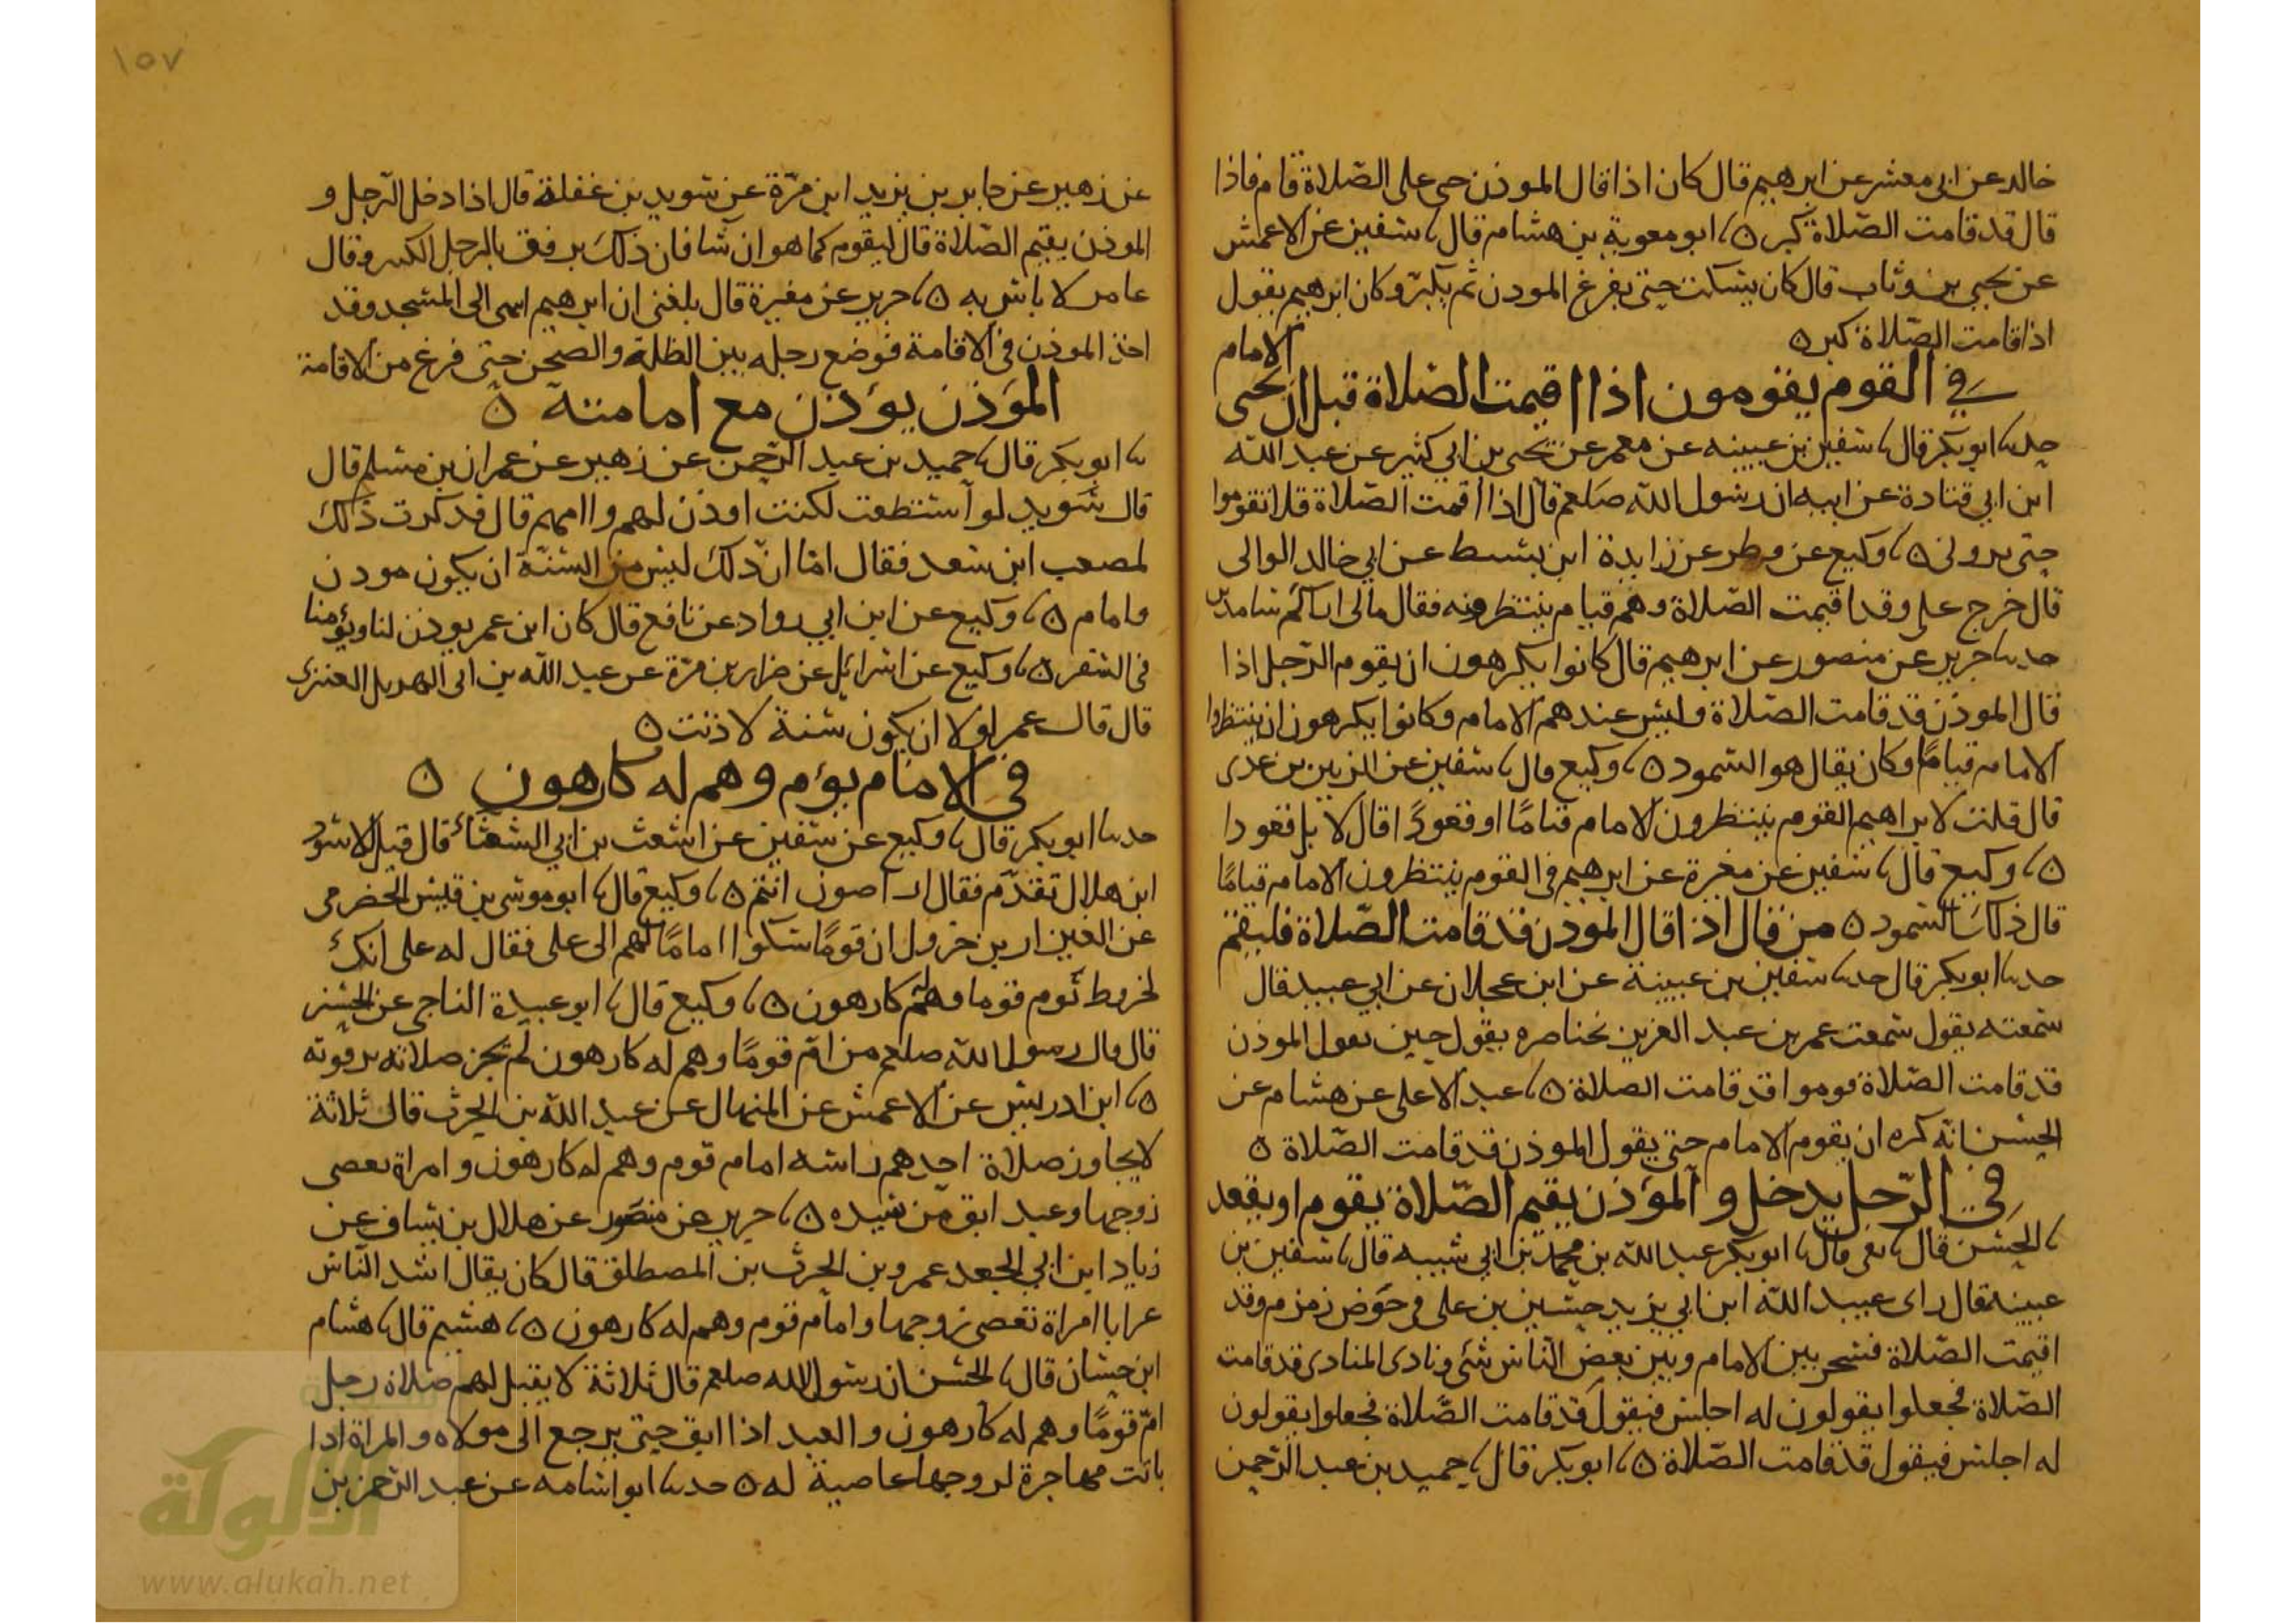 خالد عن ابى معشر عن ابرهيم قال كان اذا قال الموذن حى على الصلاة قام فاذا
قال قد قامت الصلاة كبر ٥ ابو معوية بن هشام قال سفين عن الاعمش
عن يحيى بن وثاب قال كان يسكت حتى يفرغ الموذن ثم يكبر وكان ابرهيم يقول
اذا قامت الصلاة كبر ٥
الامام
في القوم يقومون اذا اقيمت الصلاة قبل ان يحى
حدثنا ابو بكر قال سفين بن عيينه عن معمر عن يحيى بن ابي كثير عن عبد الله
ابن ابي قتادة عن ابيه ان رسول الله صلعم قال اذا اقيمت الصلاة فلا تقوموا
حتى ترونى ٥ وكيع عن فطر عن زايدة ابن نشيط عن ابي خالد الوالى
قال خرج على وقد اقيمت الصلاة وهم قيام ينتظرونه فقال مالى اراكم سامدين
حدثنا جرير عن منصور عن ابرهيم قال كانوا يكرهون ان يقوم الرجل اذا
قال الموذن قد قامت الصلاة وليس عندهم الامام وكانوا يكرهون ان ينتظروا
الامام قيامًا وكان يقال هو السمود ٥ وكيع قال سفين عن الزبير بن عدى
قال قلت لابراهيم القوم ينتظرون الامام قيامًا او قعودًا قال لا بل قعودا
٥ وكيع قال سفين عن مغيرة عن ابرهيم في القوم ينتظرون الامام قيامًا
قال ذلك السمود ٥ من قال اذا قال الموذن قد قامت الصلاة فليقم
حدثنا ابو بكر قال حدثنا سفين بن عيينة عن ابن عجلان عن ابي عبيد قال
سمعته يقول سمعت عمر بن عبد العزيز بخناصره يقول حين يقول الموذن
قد قامت الصلاة قوموا قد قامت الصلاة ٥ عبد الاعلى عن هشام عن
الحسن انه كره ان يقوم الامام حتى يقول الموذن قد قامت الصلاة ٥
في الرجل يدخل و المؤذن يقيم الصلاة يقوم او يقعد
الحسن قال بقى قال ابو بكر عبد الله بن محمد بن ابي شيبه قال سفين بن
عيينة قال راى عبيد الله ابن ابي يزيد حسين بن على في حوض زمزم وقد
اقيمت الصلاة فشجر بين الامام وبين بعض الناس شئ ونادى المنادى قد قامت
الصلاة فجعلوا يقولون له اجلس فيقول قد قامت الصلاة فجعلوا يقولون
له اجلس فيقول قد قامت الصلاة ٥ ابو بكر قال حميد بن عبد الرحمن
١٥٧
عن زهير عن جابر بن يزيد ابن مرة عن سويد بن غفلة قال اذا دخل الرجل و
الموذن يقيم الصلاة قال ليقوم كما هو ان شا فان ذلك يرفق بالرجل الكبير وقال
عامر لا باس به ٥ جرير عن مغيرة قال بلغنى ان ابرهيم اسمى الى المسجد وقد
اخذ الموذن في الاقامة فوضع رجله بين الظلة والصحن حتى فرغ من الاقامة
المؤذن يؤذن مع امامته ٥
ابو بكر قال حميد بن عبد الرحمن عن زهير عن عمران بن مسلم قال
قال سويد لو استطعت لكنت اوذن لهم واامهم قال فذكرت ذلك
لمصعب ابن سعد فقال اما ان ذلك ليس من السنة ان يكون موذن
وامام ٥ وكيع عن ابن ابي رواد عن نافع قال كان ابن عمر يوذن لنا ويؤمنا
في السفر ٥ وكيع عن اسرائيل عن ضرار بن مرة عن عبد الله بن ابى الهديل العنزى
قال قال عمر لولا ان يكون سنة لاذنت ٥
في الامام يؤم وهم له كارهون ٥
حدثنا ابو بكر قال وكيع عن سفين عن اشعث بن ابي الشعثاء قال قيل للاسود
ابن هلال تقدم فقال اراصون انتم ٥ وكيع قال ابو موسى بن قيس الحضرمى
عن العيزار بن جرول ان قومًا شكوا امامًا لهم الى على فقال له على انك
لخروط تؤم قوما وهم كارهون ٥ وكيع قال ابو عبيدة الناجى عن الحسن
قال قال رسول الله صلعم من ام قومًا وهم له كارهون لم تجز صلاته ترقوته
٥ ابن ادريس عن الاعمش عن المنهال عن عبد الله بن الحرث قال ثلاثة
لا يجاوز صلاة احدهم راسه امام قوم وهم له كارهون وامراة تعصى
زوجها وعبد ابق من سيده ٥ جرير عن منصور عن هلال بن يساف عن
زياد ابن ابي الجعد عمرو بن الحرث بن المصطلق قال كان يقال اشد الناس
عرابا امراة تعصى زوجها وامام قوم وهم له كارهون ٥ هشيم قال هشام
ابن حسان قال الحسن ان رسول الله صلعم قال ثلاثة لا يقبل لهم صلاة رجل
ام قومًا وهم له كارهون والعبد اذا ابق حتى يرجع الى مولاه والمراة اذا
باتت مهاجرة لزوجها عاصية له ٥ حدثنا ابو اسامه عن عبد الرحمن بن
الألوكة
www.alukah.net